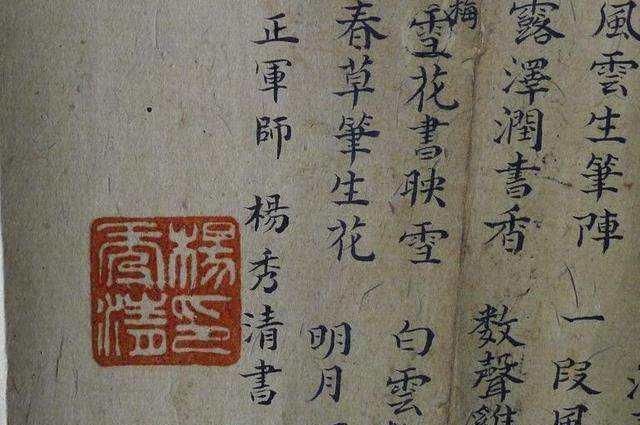 風雲生筆陣 一段風
露澤潤書香 數聲
梅
雪花書映雪 白雲
春草筆生花 明月
正軍師 楊秀清書
楊印
秀清